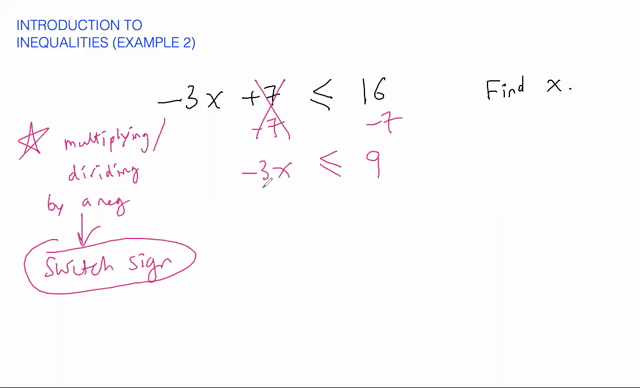 INTRODUCTION TO
INEQUALITIES (EXAMPLE 2)
-3x +7 ≤ 16 Find x.
+7 -7
-3x ≤ 9
multiplying/
dividing
by a neg
Switch sign